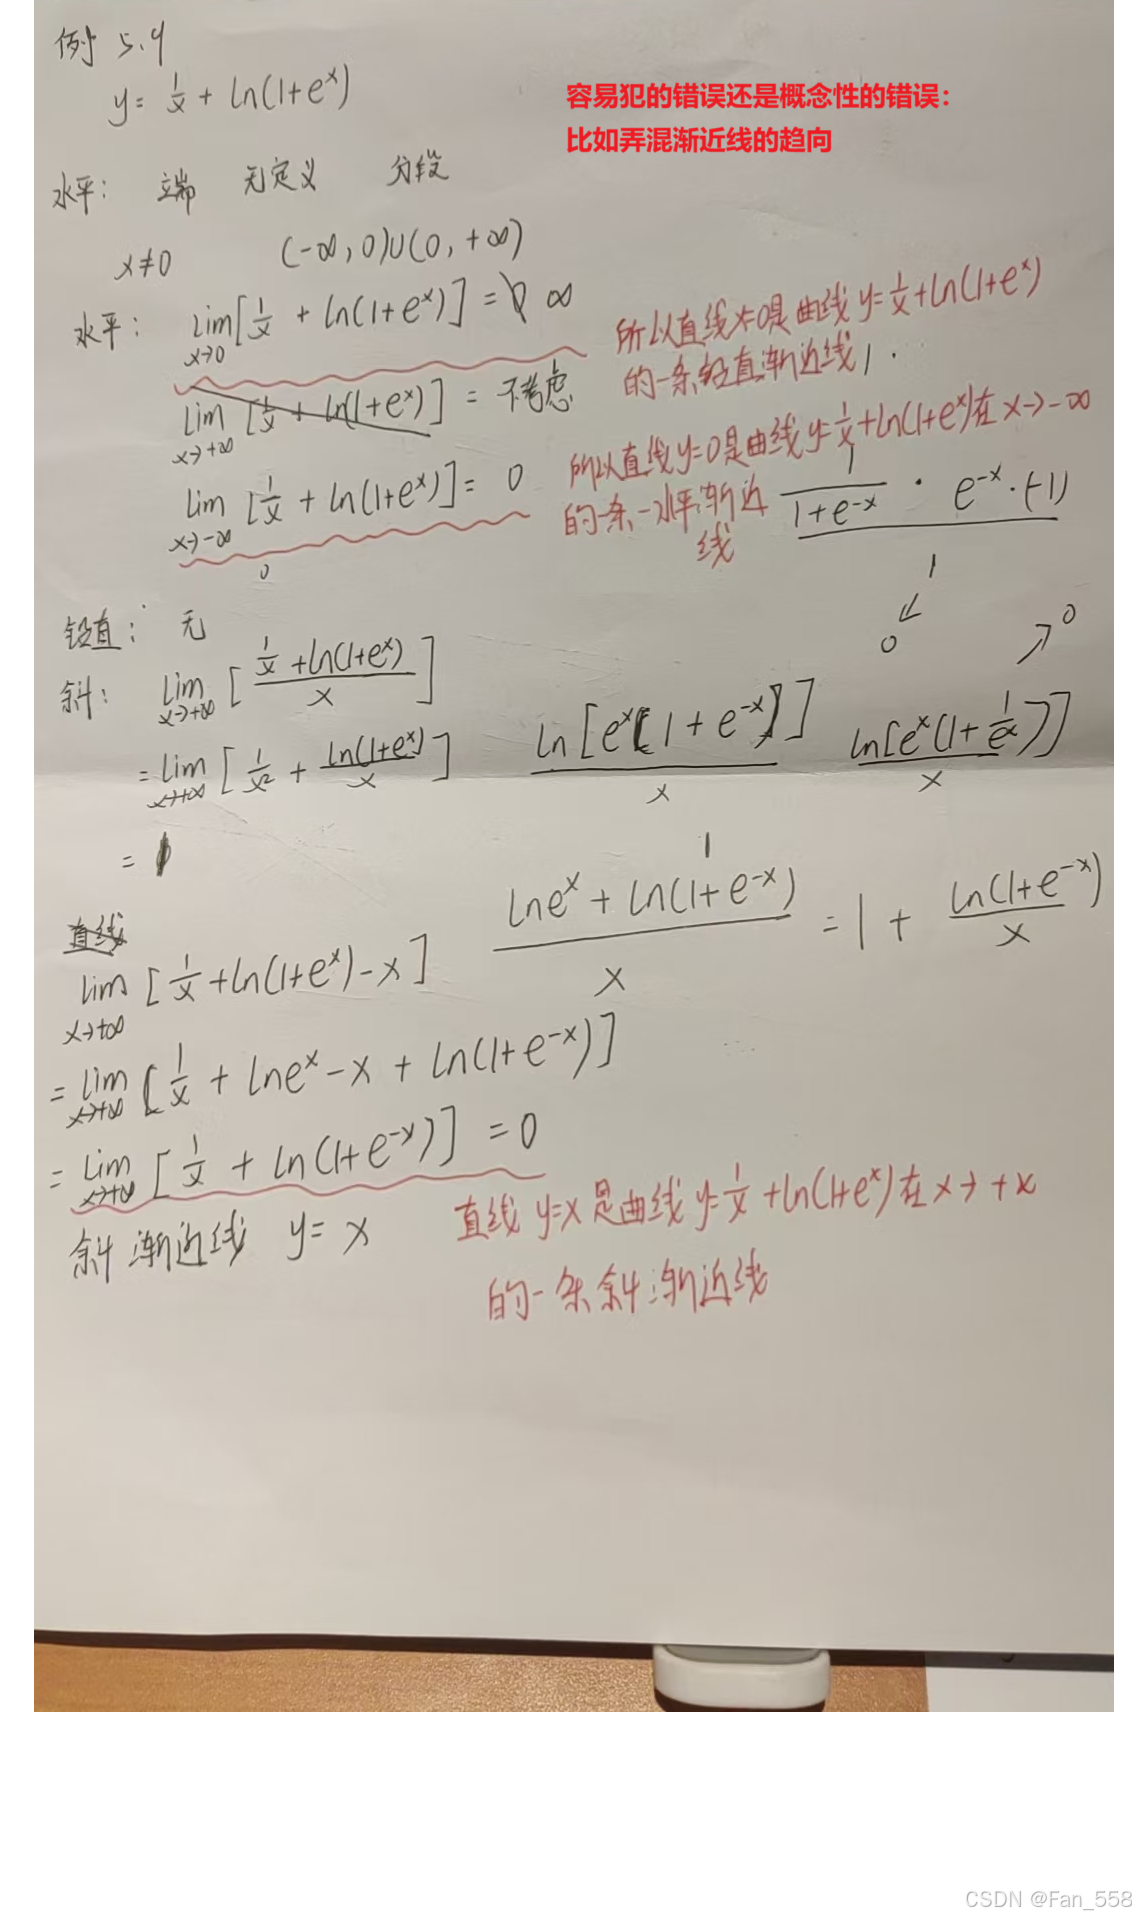 例 5.9
y= 1/x + ln(1+e^x)
容易犯的错误还是概念性的错误：
比如弄混渐近线的趋向
水平： 端 无定义 分段
x≠0 (-∞,0)∪(0,+∞)
水平： lim x→0 [1/x + ln(1+e^x)] = ∞
所以直线x=0是曲线y=1/x+ln(1+e^x)
的一条铅直渐近线
lim x→+∞ [1/x + ln(1+e^x)] = 不考虑
lim x→-∞ [1/x + ln(1+e^x)] = 0
0
所以直线y=0是曲线y=1/x+ln(1+e^x)在x→-∞
的一条水平渐近
线
1/(1+e^-x) · e^-x·(-1)
1
0
0
铅直： 无
斜： lim x→+∞ [(1/x+ln(1+e^x))/x]
= lim x→+∞ [1/x² + ln(1+e^x)/x]
ln[e^x(1+e^-x)]/x
ln[e^x(1+1/e^x)]/x
= 1
(lne^x + ln(1+e^-x))/x = 1 + ln(1+e^-x)/x
1
直线
lim x→+∞ [1/x+ln(1+e^x)-x]
= lim x→+∞ [1/x + lne^x-x + ln(1+e^-x)]
= lim x→+∞ [1/x + ln(1+e^-x)] = 0
斜渐近线 y= x
直线 y=x 是曲线y=1/x+ln(1+e^x)在x→+∞
的一条斜渐近线
CSDN @Fan_558